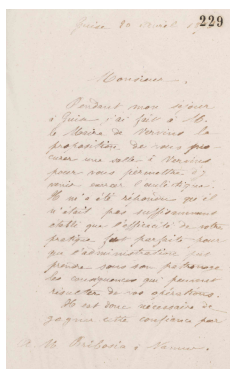 229
Guise 20 Avril 18
Monsieur,
Pendant mon séjour
à Guise, j'ai fait à M.
le Maire de Vervins la
proposition de vous pro-
curer une salle à Vervins
pour vous permettre d'y
venir
Il m'a été répondu qu'il
n'était pas suffisamment
établi que l'efficacité de votre
pratique fut parfaite pour
que l'administration put
prendre sous son patronage
les conséquences qui peuvent
résulter de vos opérations.
Il est donc nécessaire de
gagner cette confiance par
A M.